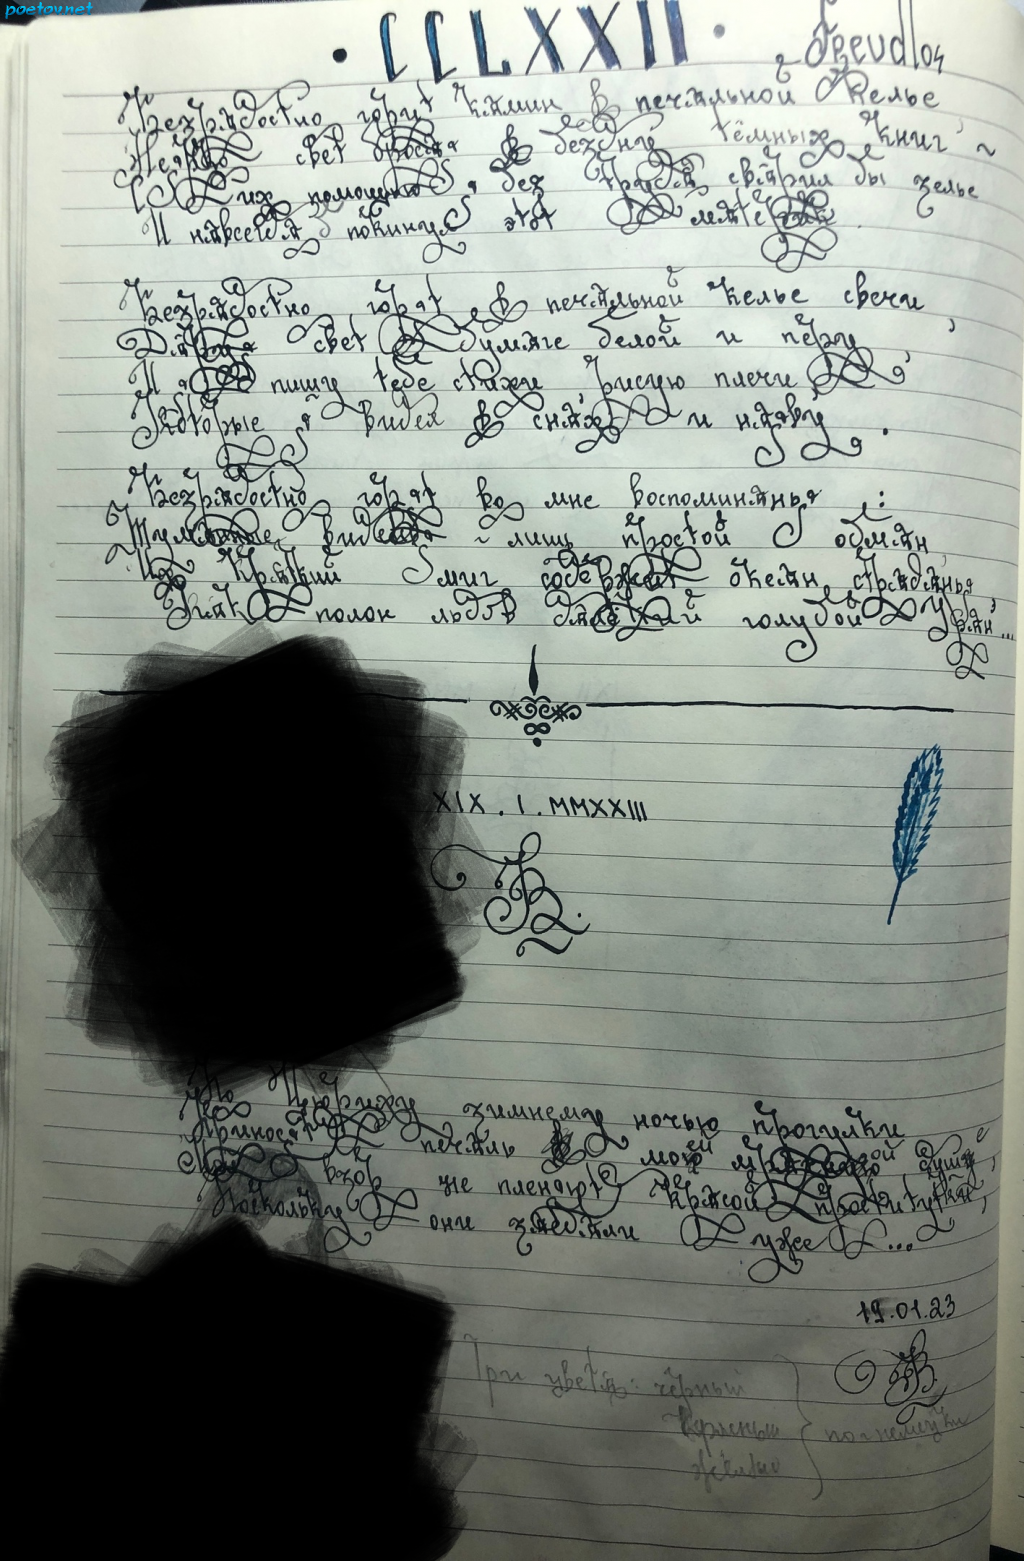 poetov.net
• CCLXXII •
Безрадостно горит камин в печальной келье
свет бросая в бездну тёмных книг, ~
С их помощью, без труда сварил бы зелье
И навсегда б покинул этот
Безрадостно горят в печальной келье свечи,
Даруя свет бумаге белой и перу,
И я пишу тебе стихи, рисую плечи,
Которые я видел в снах и наяву.
Безрадостно горят во мне воспоминанья:
Туманные виденья ~ лишь простой обман,
Но краткий миг содержит океан страданья,
Как полон льдов далёкий голубой Уран...
XIX.I.MMXXIII
По Цюриху зимнему ночью прогулки
Приносят печаль в мою мрачную душу,
взор не пленяют красой проститутки,
Поскольку они заебали уже...
19.01.23
Три цвета: чёрный
красный
жёлтый
по-немецки